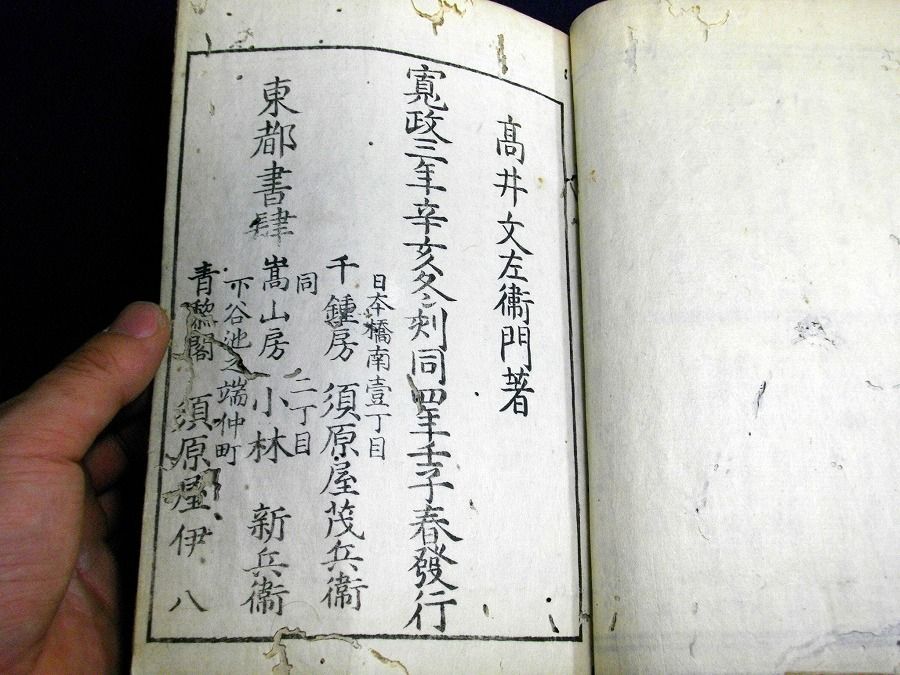 高井文左衞門著
寛政三年辛亥冬刻同四年壬子春發行
日本橋南壹丁目
千鍾房 須原屋茂兵衞
同 二丁目
東都書肆 嵩山房 小林 新兵衞
下谷池之端仲町
青黎閣 須原屋伊八